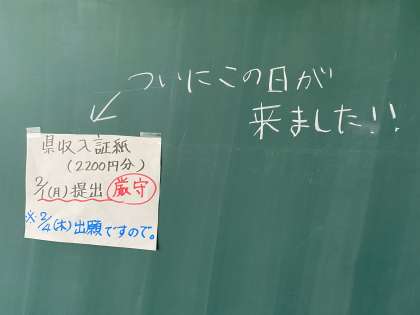 ついにこの日が
来ました!!
県収入証紙
(2200円分)
2/1(月)提出 厳守
※2/4(木)出願ですので。